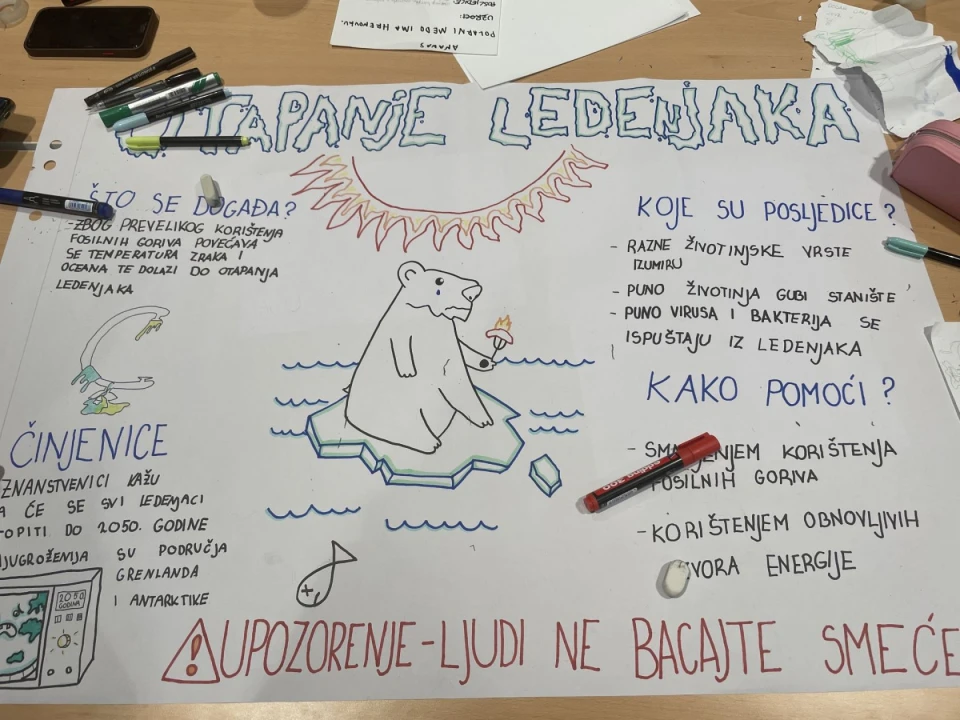 POLARNI MEDO IMA HRENOVKU.
UZROCI:
OTAPANJE LEDENJAKA
ŠTO SE DOGAĐA?
-ZBOG PREVELIKOG KORIŠTENJA
FOSILNIH GORIVA POVEĆAVA
SE TEMPERATURA ZRAKA I
OCEANA TE DOLAZI DO OTAPANJA
LEDENJAKA
ČINJENICE
ZNANSTVENICI KAŽU
ĆE SE SVI LEDENJACI
OTOPITI DO 2050. GODINE
SU PODRUČJA
GRENLANDA
I ANTARKTIKE
2050
GODINA
KOJE SU POSLJEDICE?
- RAZNE ŽIVOTINJSKE VRSTE
IZUMIRU
- PUNO ŽIVOTINJA GUBI STANIŠTE
- PUNO VIRUSA I BAKTERIJA SE
ISPUŠTAJU IZ LEDENJAKA
KAKO POMOĆI?
- KORIŠTENJA
FOSILNIH GORIVA
- KORIŠTENJEM OBNOVLJIVIH
ENERGIJE
edding 300
! UPOZORENJE-LJUDI NE BACAJTE SMEĆE